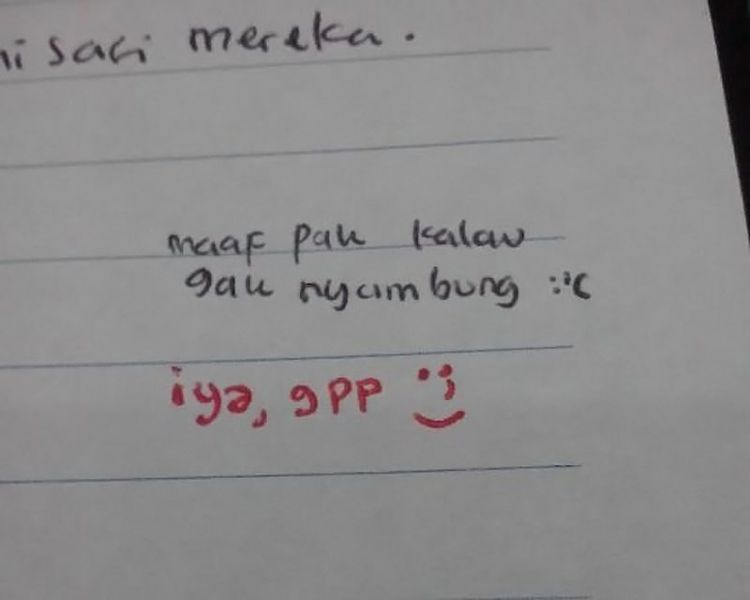 nisasi mereka.
maaf pak kalau
gak nyambung :'(
iya, gpp :)